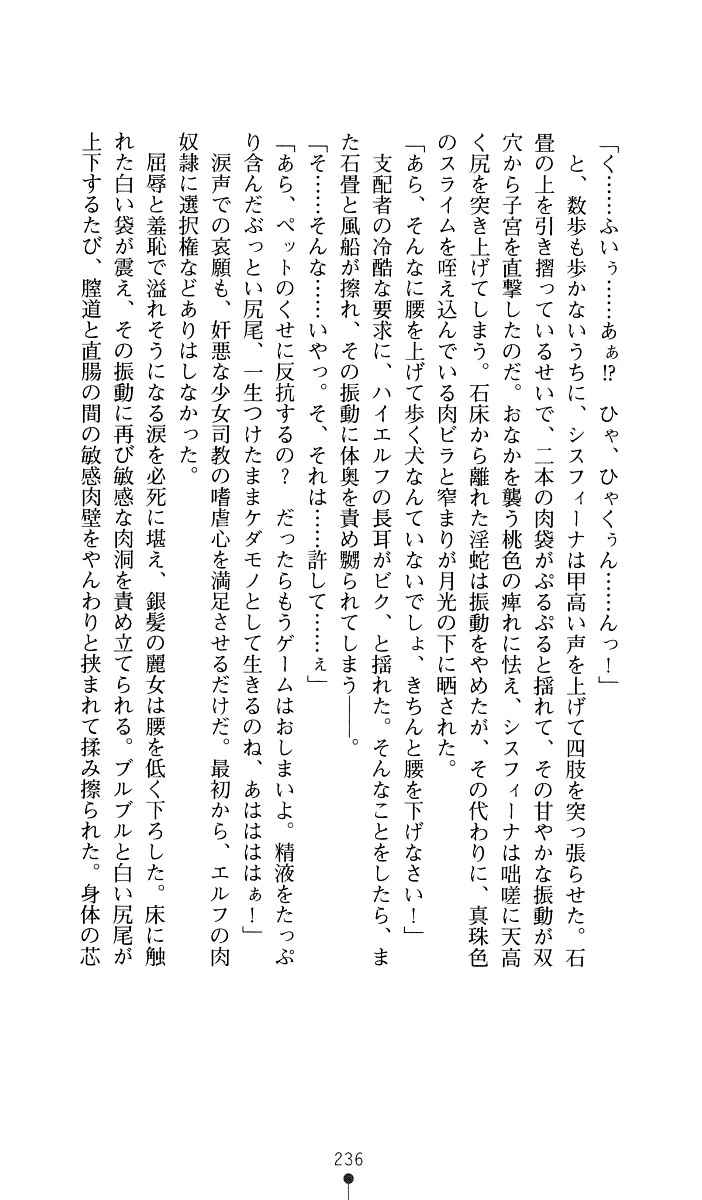 「く……ふいぅ……あぁ!?　ひゃ、ひゃくぅん……んっ！」
　と、数歩も歩かないうちに、シスフィーナは甲高い声を上げて四肢を突っ張らせた。石
畳の上を引き摺っているせいで、二本の肉袋がぷるぷると揺れて、その甘やかな振動が双
穴から子宮を直撃したのだ。おなかを襲う桃色の痺れに怯え、シスフィーナは咄嗟に天高
く尻を突き上げてしまう。石床から離れた淫蛇は振動をやめたが、その代わりに、真珠色
のスライムを咥え込んでいる肉ビラと窄まりが月光の下に晒された。
「あら、そんなに腰を上げて歩く犬なんていないでしょ、きちんと腰を下げなさい！」
　支配者の冷酷な要求に、ハイエルフの長耳がビク、と揺れた。そんなことをしたら、ま
た石畳と風船が擦れ、その振動に体奥を責め嬲られてしまう――。
「そ……そんな……いやっ。そ、それは……許して……ぇ」
「あら、ペットのくせに反抗するの？　だったらもうゲームはおしまいよ。精液をたっぷ
り含んだぶっとい尻尾、一生つけたままケダモノとして生きるのね、あはははははぁ！」
　涙声での哀願も、奸悪な少女司教の嗜虐心を満足させるだけだ。最初から、エルフの肉
奴隷に選択権などありはしなかった。
　屈辱と羞恥で溢れそうになる涙を必死に堪え、銀髪の麗女は腰を低く下ろした。床に触
れた白い袋が震え、その振動に再び敏感な肉洞を責め立てられる。ブルブルと白い尻尾が
上下するたび、膣道と直腸の間の敏感肉壁をやんわりと挟まれて揉み擦られた。身体の芯
236